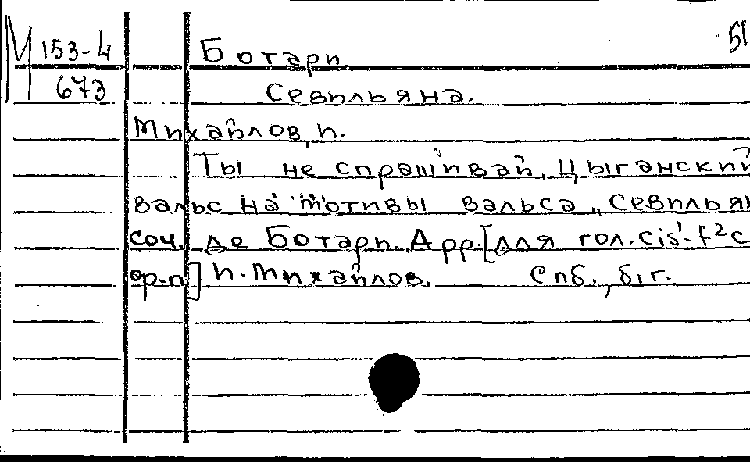 М 153-4 Ботари 51
673 Севильяна.
Михайлов, п.
Ты не спрашивай, Цыганский
вальс на мотивы вальса „Севильян
соч. де Ботари. Арр. [для гол. cis¹-f² с
ф-п] п. Михайлов. Спб., б.г.